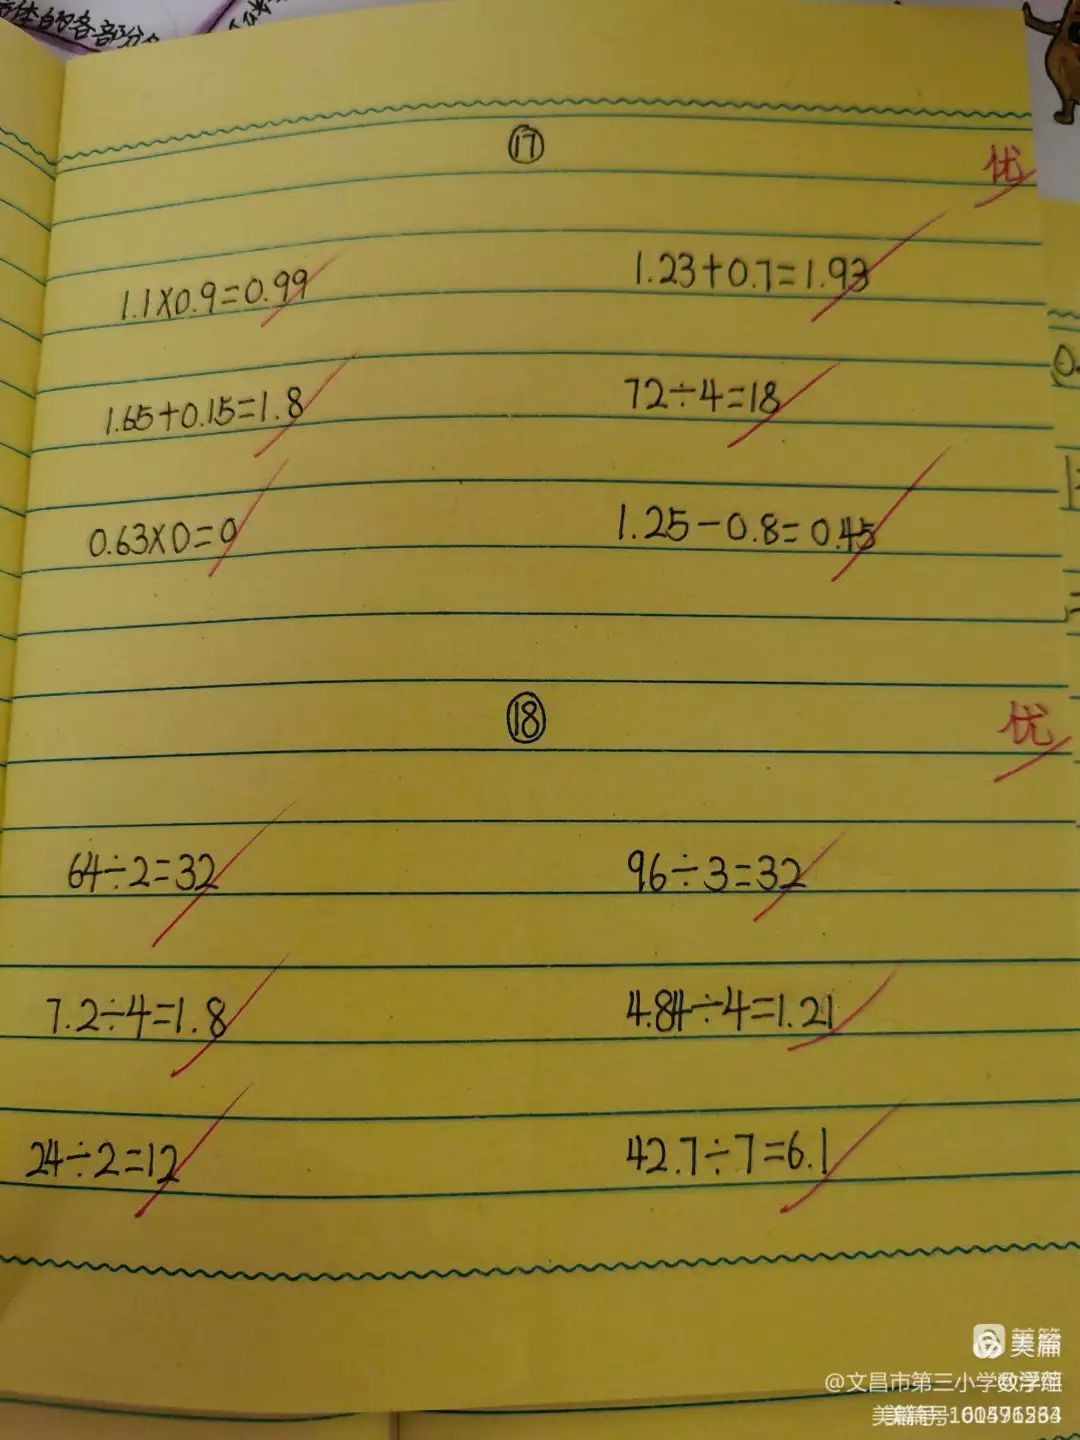 体的各部分
⑰
优
1.1×0.9=0.99 1.23+0.7=1.93
1.65+0.15=1.8 72÷4=18
0.63×0=0 1.25-0.8=0.45
⑱
优
64÷2=32 96÷3=32
7.2÷4=1.8 4.84÷4=1.21
24÷2=12 42.7÷7=6.1
美篇
@文昌市第三小学数学组
美篇号: